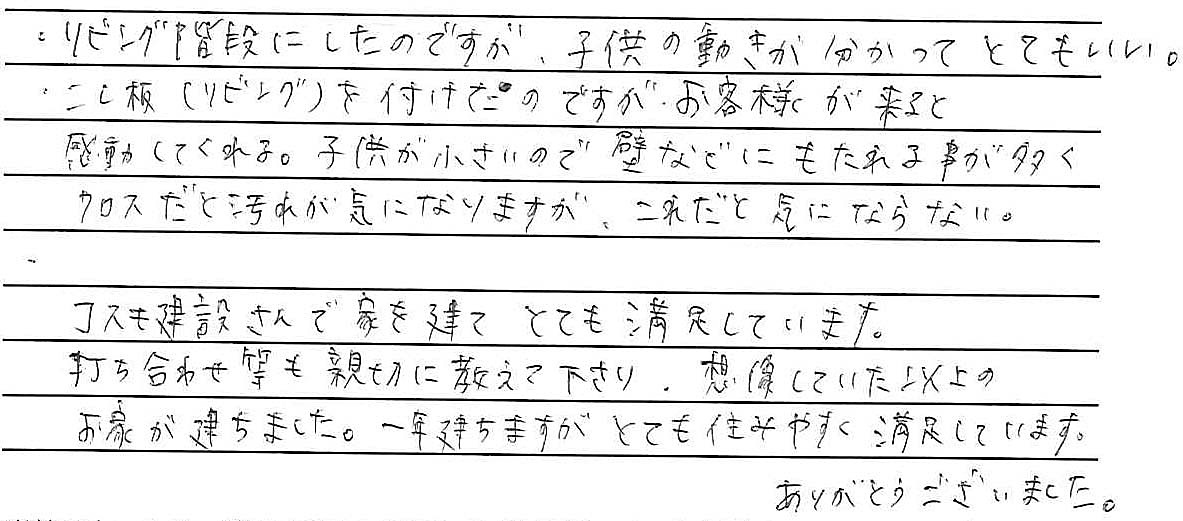 ・リビング階段にしたのですが、子供の動きが分かってとてもいい。
・こし板(リビング)を付けたのですが、お客様が来ると
感動してくれる。子供が小さいので壁などにもたれる事が多く
クロスだと汚れが気になりますが、これだと気にならない。
・
コスモ建設さんで家を建てとても満足しています。
打ち合わせ等も親切に教えて下さり、想像していた以上の
お家が建ちました。一年建ちますがとても住みやすく満足しています。
ありがとうございました。